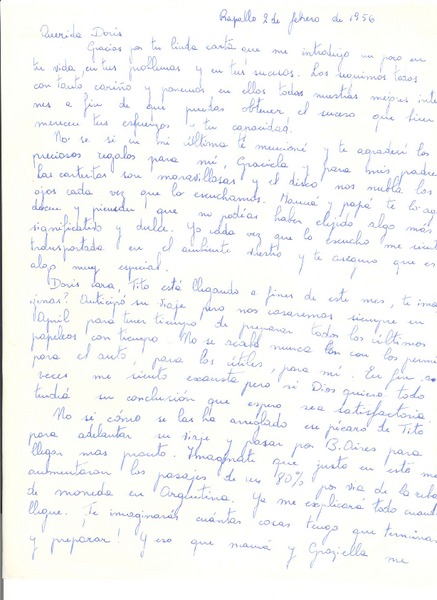 Rapallo 2 de febrero de 1956
Querida Doris
Gracias por tu linda carta que me introdujo un poco en
tu vida, en tus problemas y en tus sucesos. Los seguimos todos
con tanto cariño y ponemos en ellos todas nuestras mejores inte
nes a fin de que puedas obtener el suceso que bien
merecen tus esfuerzos y tu capacidad!
No se si en mi última te mencioné y te agradecí los
preciosos regalos para mí, Graciela y para mis padres
Las carteritas son maravillosas y el disco nos nubla los
ojos cada vez que lo escuchamos. Mamá y papá te lo agra
decen y piensan que no podías haber elejido algo más
significativo y dulce. Yo cada vez que lo escucho me siento
transportada en el ambiente vuestro y te aseguro que es
algo muy especial.
Doris cara, Tito está llegando a fines de este mes, te ima
jinas? Anticipó su viaje pero nos casaremos siempre en
April para tener tiempo de preparar todos los últimos
papeleos con tiempo. No se acaba nunca con los permi
para el auto, para los útiles, para mí. En fin, a
veces me siento exausta pero si Dios quiere todo
tendrá su conclusión que espero sea satisfactoria.
No sé cómo se las ha arreglado ese pícaro de Tito
para adelantar su viaje y pasar por B. Aires para
llegar mas pronto. Imaginate que justo en este mes
aumentaron los pasajes de un 80% por via de la
de moneda en Argentina. Ya me explicará todo cuand
llegue. Te imaginarás cuántas cosas tengo que terminar
y preparar! Y eso que mamá y Graziella me